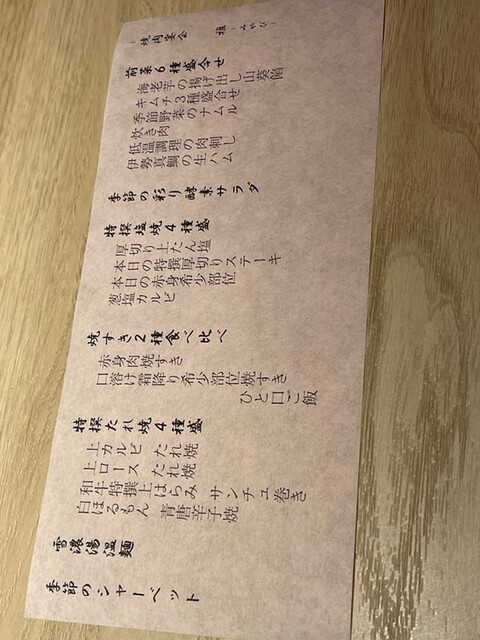 焼肉宴会
雅（みやび）
前菜６種盛合せ
海老芋の揚げ出し山葵餡
キムチ３種盛合せ
季節野菜のナムル
炊き肉
低温調理の肉刺し
伊勢真鯛の生ハム
季節の彩り酵素サラダ
特撰塩焼４種盛
厚切り上たん塩
本日の特撰厚切りステーキ
本日の赤身希少部位
葱塩カルビ
焼すき２種食べ比べ
赤身肉焼すき
口溶け霜降り希少部位焼すき
ひと口ご飯
特撰たれ焼４種盛
上カルビ たれ焼
上ロース たれ焼
和牛特撰上はらみ サンチュ巻き
白ほるもん 青唐辛子焼
雪濃湯温麺
季節のシャーベット